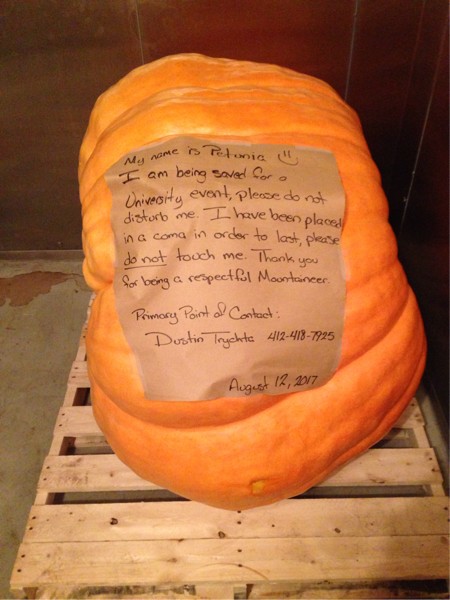 My name is Petunia
I am being saved for a
University event, please do not
disturb me. I have been placed
in a coma in order to last, please
do not touch me. Thank you
for being a respectful Mountaineer.
Primary Point of Contact:
Dustin Trychta 412-418-7925
August 12, 2017